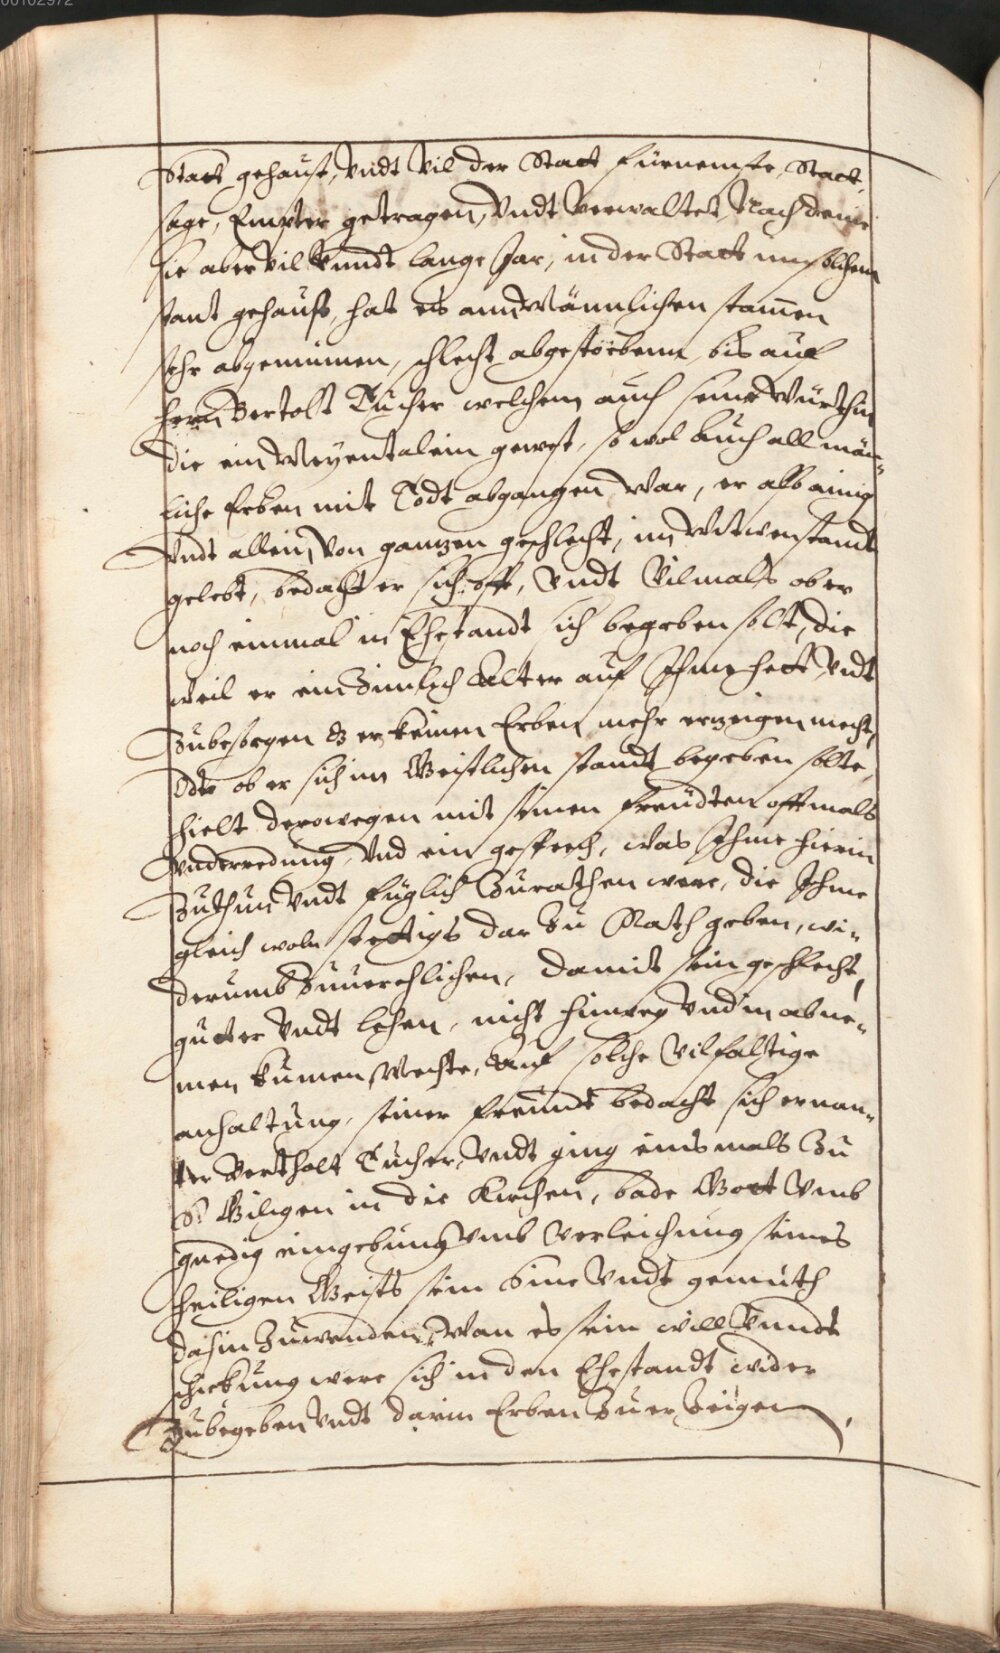 00102972
Statt gehaust, Vndt Vil der Statt fürnemste, Statt,
sege, Empter getragen, Vndt Verwaltet, Nach deme
sie aber Vil Vnndt lange Jar, in der Statt im solchem
stant gehaust, hat es am Männlichen stamen
sehr abgenumen, schlecht abgestorbenn, bis auf
herrn Bertolt Tucher welchem auch seine Würthin
die ein Meyentalein gewest, so wol auch all män-
liche Erben mit Todt abgangen war, er also ainig
Vndt allein, Von ganzen geschlecht, im Witwenstandt
gelebt, bedacht er sich oft, Vndt Vilmals ob er
noch einmal in Ehestandt sich begeben solt, die
weil er ein Zimlich Alter auf Jhme hett, Vndt
Zubesorgen dz er keinen Erben mehr erzeigen mecht,
Oder ob er sich im Geistlichen standt begeben solte,
hielt derowegen mit seinen freudten offtmals
Vnderredung, Vnd ein gesprech, was Jhme hierin
Zuthun Vndt füglich Zurathen were, die Jhme
gleich woln stettigs dar Zu Rath geben, wi-
derumb Zuuerehlichen, damit sein geschlecht,
gutter Vndt lehen, nicht hinweg Vnd in abne-
men kumen Mechte, Auf solche Vilfaltige
anhaltung, seiner freundt bedacht sich ernan-
ter Berthalt Tucher, Vndt ging eins mals Zu
S: Gilgen in die Kirchen, bade Gott Vmb
gnedig eingebung Vmb Verleichung seines
heiligen Geists sein Sine Vndt gemuth
dahin Zuwenden, Wan es sein will Vnndt
schickung were sich in den Ehestandt wider
Zubegeben Vndt darin Erben Zuer Zeigen,